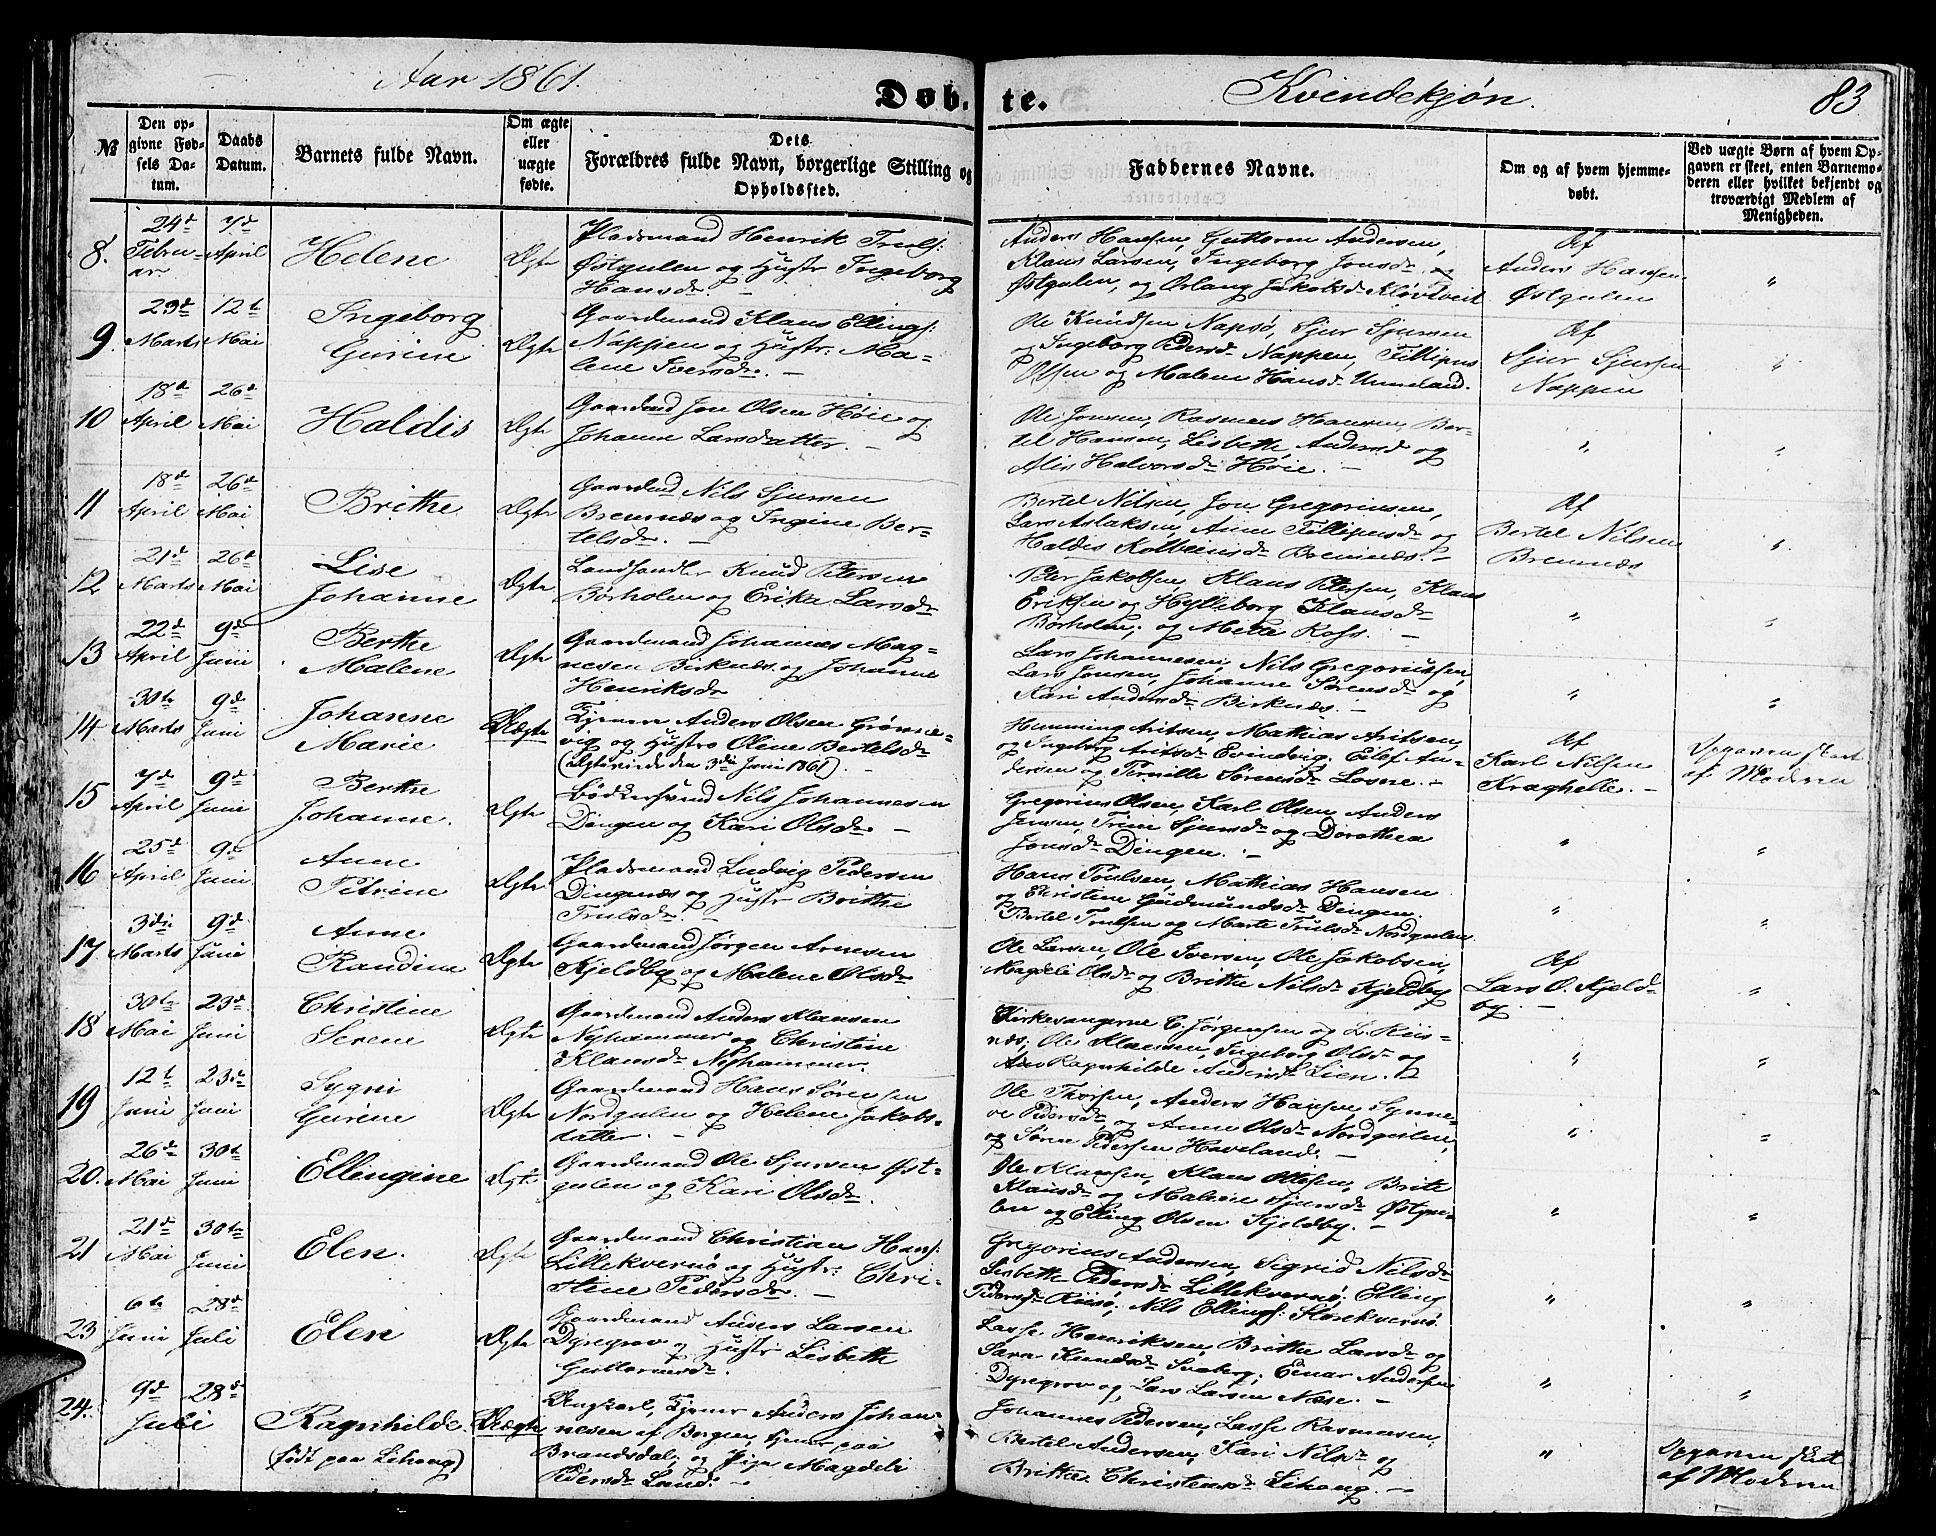 Aar 1861.
Døb-te.
Kvindekjøn.
83
№
Den opgivne Fødsels Datum.
Daabs Datum.
Barnets fulde Navn.
Om ægte eller uægte fødte.
Dets Forældres fulde Navn, borgerlige Stilling og Opholdssted.
Faddernes Navne.
Om og af hvem hjemmedøbt.
Ved uægte Børn af hvem Opgaven er skeet, enten Barnemoderen eller hvilket bekjendt og troværdigt Medlem af Menigheden.
8.
24d Februar
7d April
Helene
Ægte
Pladsmand Henrik Truls:
Østgulen og Hustr Ingeborg
Hansdr. –
Anders Hansen, Guttorm Andersen,
Klaus Larsen, Ingeborg Jonsdr. og
Østgulen, og Orlaug Jakobsdr Kløvtveit
Af
Anders Hansen
Østgulen
"
9.
29d Marts
12t Mai
Ingeborg
Gurine
Ægte
Gaardmand Klaus Ellings:
Nappen og Hustr: Ma-
lene Iversdr. –
Ole Knudsen Napsø, Sjur Sjursen
og Ingeborg Pedersdr Nappen, Fillipus
Olsen og Malene Hansdr Unneland.
Af
Sjur Sjursen
Nappen
"
10
18d April
26d Mai
Haldis
Ægte
Gaardmd Jon Olsen Høie og
Johanne Larsdatter. –
Ole Jonsen, Rasmus Hansen, Ber-
tel Hansen, Lisbette Andersd og
Alis Halvorsdr Høie. –
"
"
11
18d April
26d Mai
Brithe
Ægte
Gaardmd Nils Sjursen
Bremnæs og Ingine Ber-
telsdr. –
Bertel Nilsen, Jon Gregoriusen,
Lars Aslaksen, Anne Fillipusdr og
Haldis Kolbensdr Bremnæs. –
Af
Bertel Nilsen
Bremnæs
"
12
21d Marts
26d Mai
Lise
Johanne
Ægte
Landhandler Knud Petersen
Børholm og Erika Larsdr
Peter Jakobsen, Klaus Petersen, Klaus
Eriksen og Hylleborg Klausdr
Børholm, og Mette Ross. –
"
"
13
22d April
9d Juni
Berthe
Malene
Ægte
Gaardmand Johannes Mag-
nesen Birknæs og Johanne
Henriksdr
Lars Johannesen, Nils Gregoriussen,
Lars Jonsen, Johanne Sørensdr og
Kari Andersdr Birknæs. –
"
"
14
30te Marts
9d Juni
Johanne
Marie
Uægte
Tjener Anders Olsen Grønne-
vig og Hustro Oline Bertelsdr
(Ægteviede den 3die Juni 1861). –
Henning Aritsen, Mathias Aritsen,
og Ingeborg Aritsdr Evindvig, Eilef An-
dersen og Pernille Sørensdr Losne. –
Af
Karl Nilsen
Kraghelle. –
Opgaven skeet
af Moderen
15
7d April
9d Juni
Berthe
Johanne.
Ægte
Bødkersvend Nils Johannesen
Dingen og Kari Olsdr –
Gregorius Olsen, Karl Olsen, Anders
Jensen, Trine Sjursdr og Dorothea
Jonsdr Dingen. –
"
"
16
25d April
9d Juni
Anne
Petrine
Ægte
Pladsmand Ludvig Pedersen
Dingenæs og Hustr Brithe
Trulsdr. –
Hans Poulsen, Mathias Hansen
og Christine Gudmundsdr Dingen.
Bertel Trulsen og Marte Trulsdr Nordgulen
"
"
17
3die Marts
9d Juni
Anne
Kandine
Ægte
Gaardmand Jørgen Arnesen
Kjeldby og Malene Olsdr
Ole Larsen, Ole Iversen, Ole Jakobsen,
Magdeli Olsdr og Brithe Nilsdr Kjeldby
Af
Lars O. Kjeld-
by. –
"
18
30te Mai
23d Juni
Christine
Serene
Ægte
Gaardmand Anders Klausen
Nyhammer og Christine
Klausdr Nyhammer.
Kirkesangerne C. Jørgensen og L. Riis-
næs, Ole Klausen, Ingeborg Olsdr og
Ragnhilde Andersdr Lien.
"
"
19
12t Juni
23d Juni
Sygni
Gurine
Ægte
Gaardmand Hans Sørensen
Nordgulen og Helene Jakobs-
datter. –
Ole Thorsen, Anders Hansen, Synne-
ve Pedersdr og Anne Olsdr Nordgulen,
og Søren Pedersen Haveland. –
"
"
20.
26d Mai
30te Juni
Ellengine
Ægte
Gaardmand Ole Sjursen Øst-
gulen og Kari Olsdr.
Ole Klausen, Klaus Olsen, Brite
Klausdr og Malene Sjursdr Østgu-
len og Elling Olsen Kjeldby. –
"
"
21
21d Mai
30te Juni
Elen.
Ægte
Gaardmand Christian Hans:
Lillekvernø og Hustr: Chri-
stine Pedersdr. –
Gregorius Andersen, Sigrid Nilsdr
Lisbette Pedersdr Lillekvernø, Elling
Peders: Riisø, Nils Ellings: Storekvernø.
"
"
23
6te Juni
28d Juli
Elen
Ægte
Gaardmand Anders Larsen
Dyregrov og Hustr Lisbette
Guttormsdr.
Lasse Henriksen, Brithe Larsdr og
Sara Knudsdr Snaberg, Einar Andersen
Dyregrov og Lars Larsen Næse. –
"
"
24.
9d Juli
28d
Ragnhilde
(født paa Lihaug)
Uægte
Ungkarl, Tjener Anders Johan-
nesen af Bergen, tjener paa
Brandsdal, og Pige Magdeli
Pedersdr Land. –
Johannes Pedersen, Lasse Rasmusen,
Bertel Andersen, Kari Nilsdr og
Brithe Christensdr Lihaug. –
"
Opgaven skeet
af Moderen